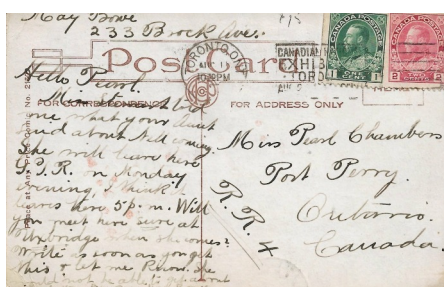 May Bowe
233 Brock Ave.
Post Card
TORONTO, ONT.
10 PM
CANADIAN
EXHIB
TORO
CANADA POSTAGE
1 1
CANADA POSTAGE
2
FOR CORRESPONDENCE
FOR ADDRESS ONLY
Hello Pearl.
one what your Aunt
said about Nell coming.
She will leave here
on Monday
evening, I think it
leaves here 5 p.m. Will
you meet here sure at
Uxbridge when she comes?
Write as soon as you get
this & let me know. She
would not be able to get about
Miss Pearl Chambers
Port Perry.
R.R. 4
Ontario.
Canada.